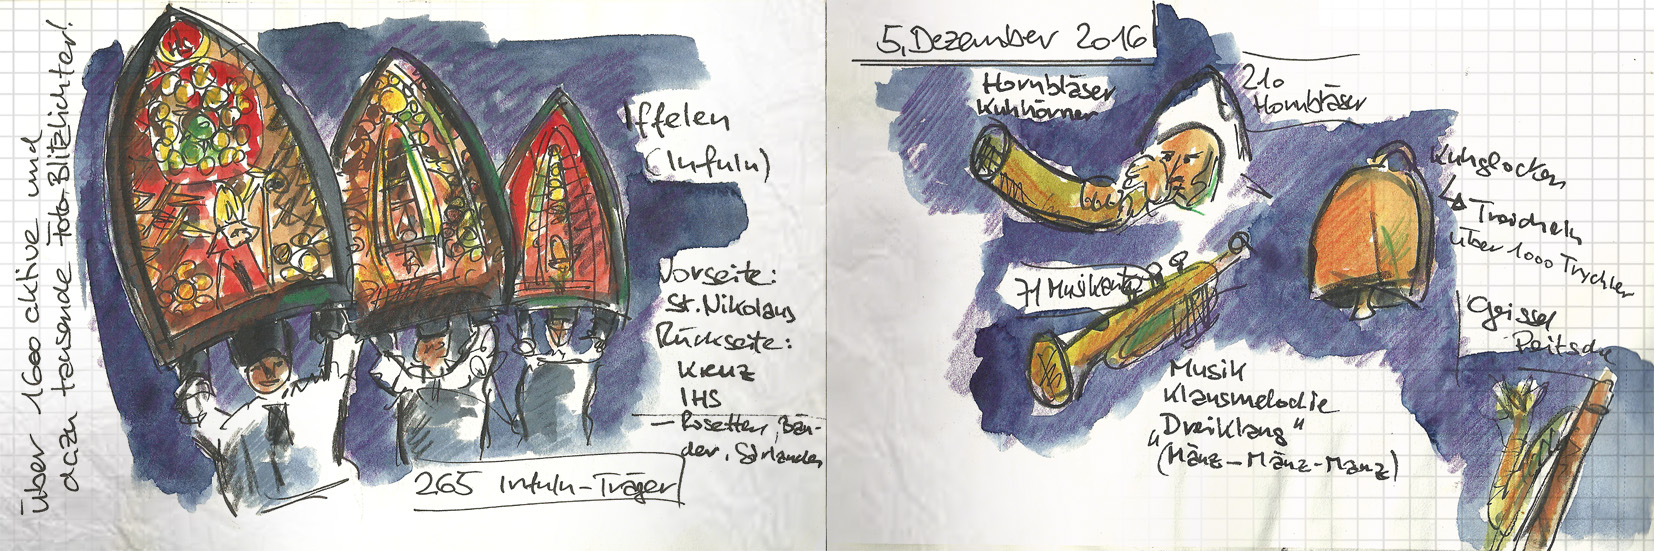 Über 1600 aktive und
dazu tausende Foto-Blitzlichter!
Iffelen
(Infuln)
Vorseite:
St. Nikolaus
Rückseite:
Kreuz
IHS
— Rosetten, Bän-
der, Girlanden
265 Infuln-Träger
5. Dezember 2016
Hornbläser
Kuhhörner
210
Hornbläser
Kuhglocken
Treicheln
über 1000 Trychler
71 Musikanten
Geissel
Peitsche
Musik
Klausmelodie
"Dreiklang"
(Mänz-Mänz-Mänz)